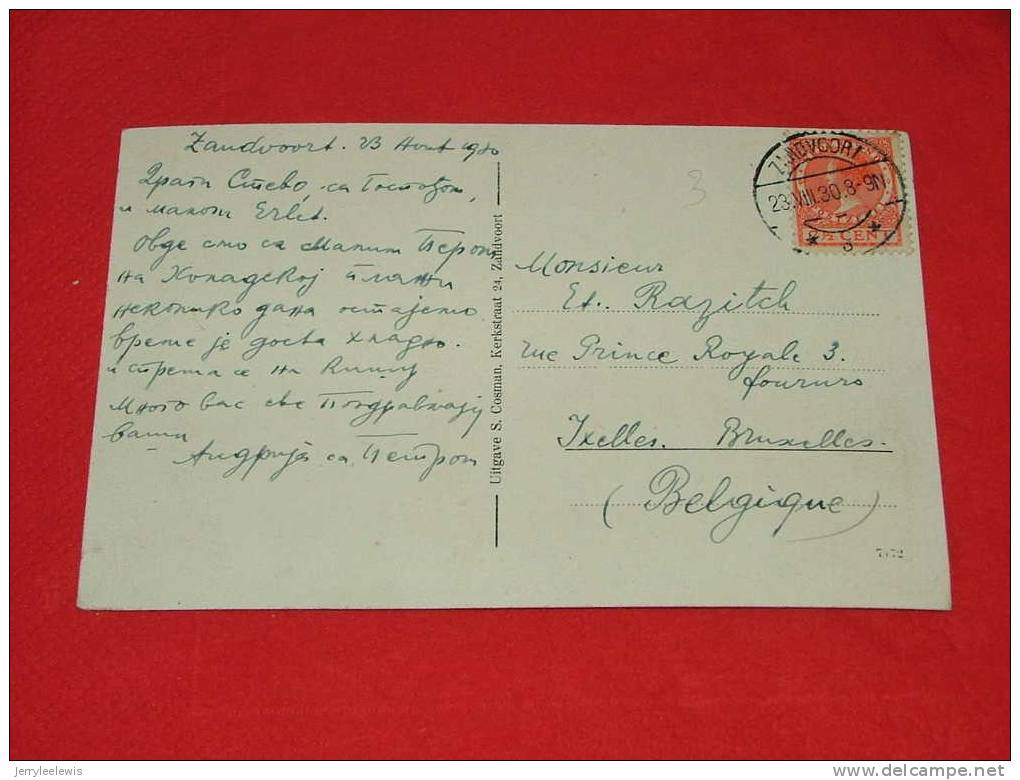 Zandvoort. 23 Août 1930
Драги Стево, са Госпођом,
и малом
Овде смо са малим Пером
на Холадској плажи
неколико дана остајемо
време је доста хладно.
и спрема се на кишу
Много вас све Поздрављају
ваши
Андрија са Петром
Uitgave S. Cosman, Kerkstraat 24, Zandvoort
ZANDVOORT
23.VIII.30.8-9N
3
½ CENT
3
Monsieur
Et. Razitch
rue Prince Royale 3.
Ixelles. Bruxelles.
(Belgique)
7172
jerryleelewis
delcampe.net